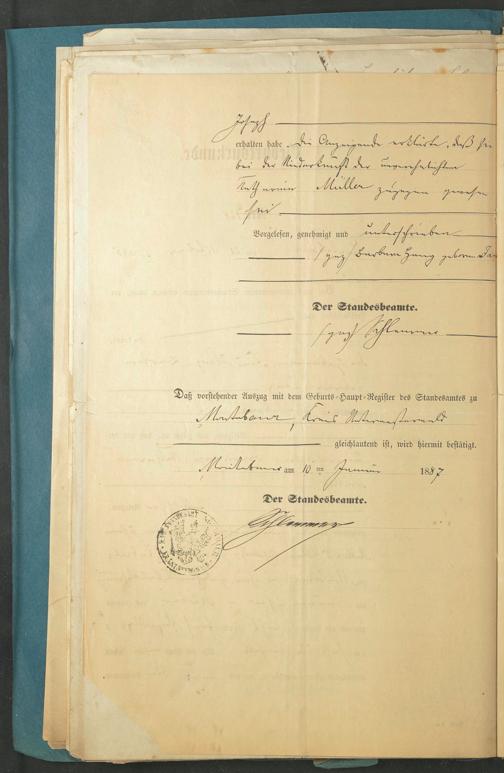 Joseph
erhalten habe. Die Anzeigende erklärte, daß sie
bei der Niederkunft der unverehelichten
Katharina Müller zugegen gewesen
sei
Vorgelesen, genehmigt und unterschrieben
(gez) Barbara geborene
Der Standesbeamte.
(gez) Schlemmer
Daß vorstehender Auszug mit dem Geburts-Haupt-Register des Standesamtes zu
Montabaur, Kreis Unterwesterwald
gleichlautend ist, wird hiermit bestätigt.
Montabaur am 10 ten Januar 1887
Der Standesbeamte.
Schlemmer